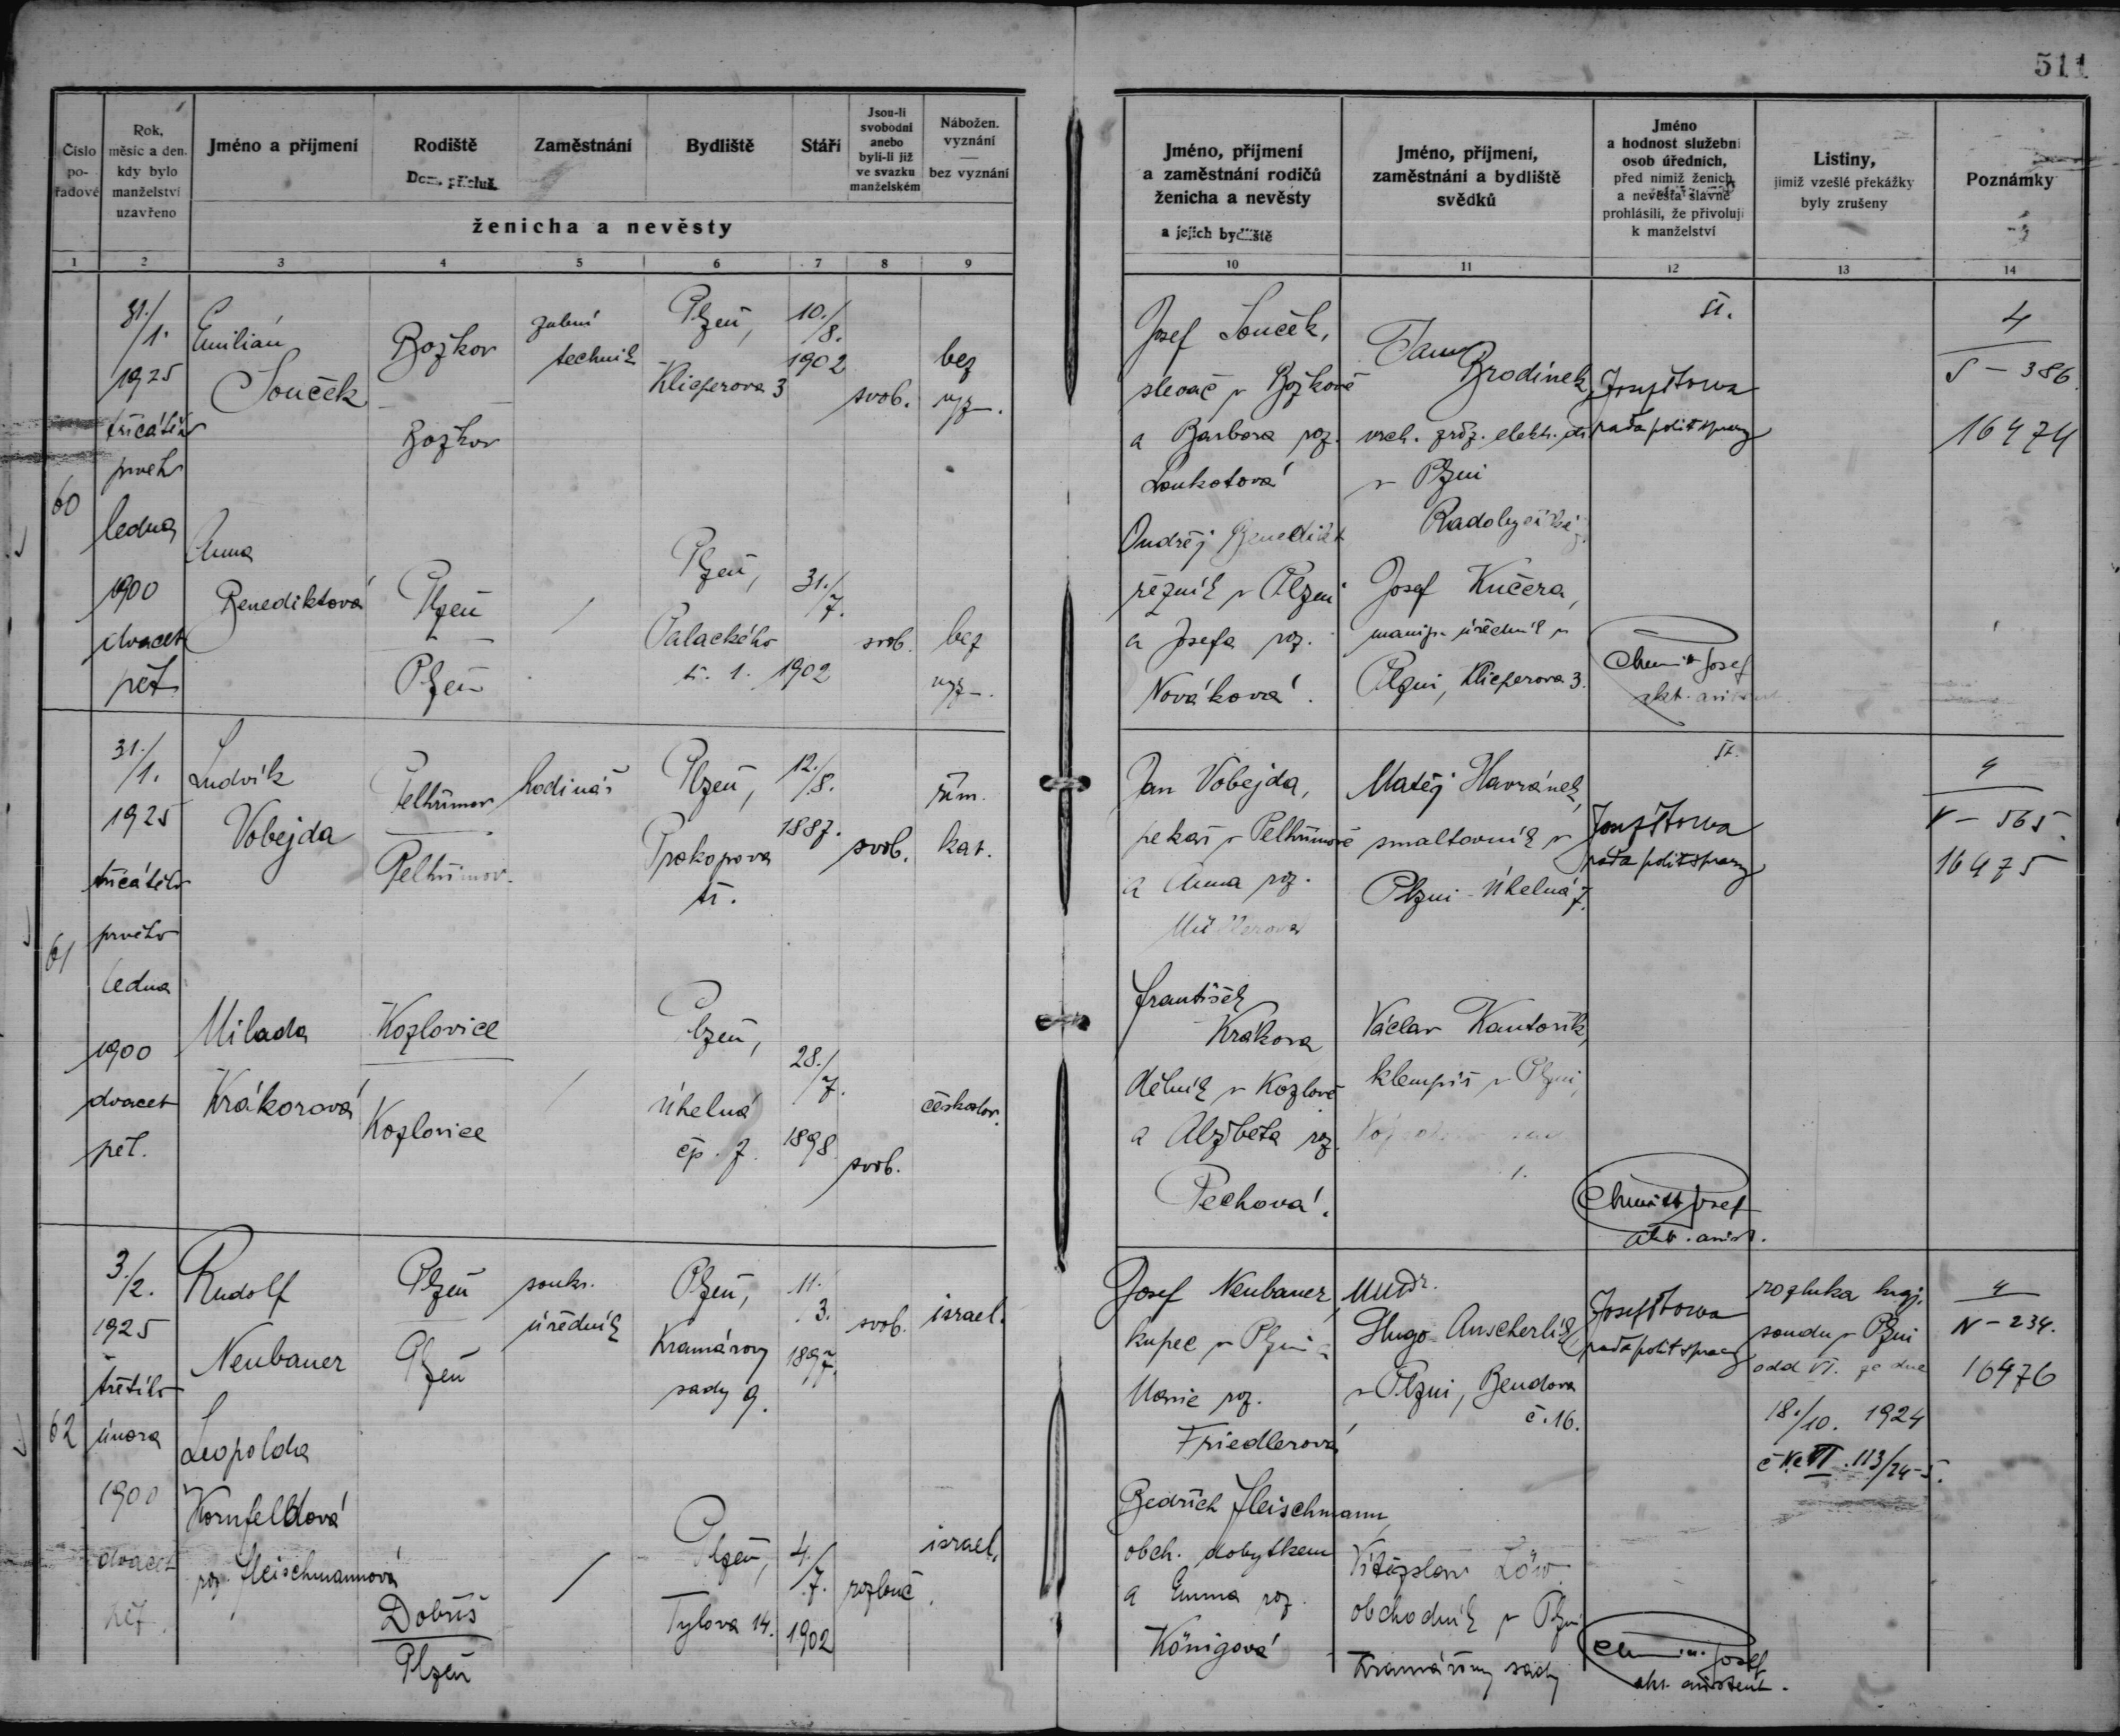 511
Číslo pořadové
Rok, měsíc a den, kdy bylo manželství uzavřeno
Jméno a příjmení
Rodiště
Dom. přísluš.
Zaměstnání
Bydliště
Stáří
Jsou-li svobodni anebo byli-li již ve svazku manželském
Nábožen. vyznání
bez vyznání
ženicha a nevěsty
Jméno, příjmení a zaměstnání rodičů ženicha a nevěsty
a jejich bydliště
Jméno, příjmení, zaměstnání a bydliště svědků
Jméno a hodnost služební osob úředních, před nimiž ženich a nevěsta slavně prohlásili, že přivolují k manželství
Listiny, jimiž vzešlé překážky byly zrušeny
Poznámky
1 2 3 4 5 6 7 8 9 10 11 12 13 14
60
31./1.
1925
třicátého
prvého
ledna
1900
dvacet
pět
Emilián
Souček
Božkov
Božkov
zubní
technik
Plzeň,
Klicperova 3
10./8.
1902
svob.
bez
vyz.
Josef Souček,
slevač v Božkově
a Barbora roz.
Loukotová
Brodínek,
vrch. zříz. elektr. dr.
v Plzni
Radobyčická
rada polit. správy
4
S – 386.
16474
Anna
Benediktová
Plzeň
Plzeň
Plzeň,
Palackého
tř. 1.
31./7.
1902
svob.
bez
vyz.
Ondřej Benedikt
řezník v Plzni
a Josefa roz.
Nováková.
Josef Kučera,
manip. úředník v
Plzni, Klicperova 3.
Josef
akt. asistent
61
31./1.
1925
třicátého
prvého
ledna
1900
dvacet
pět.
Ludvík
Vobejda
Pelhřimov
Pelhřimov.
hodinář
Plzeň,
Prokopova
tř.
12./8.
1887.
svob.
řím.
kat.
Jan Vobejda,
pekař v Pelhřimově
a Anna roz.
Müllerova
Matěj Havránek,
smaltovník v
Plzni - Úhelná 7.
rada polit. správy
4
V – 565.
16475
Milada
Krákorová
Kozlovice
Kozlovice
Plzeň,
Úhelná
čp. 7.
28./7.
1898
svob.
českoslov.
František
Krákora
dělník v Kozlově
a Alžběta roz.
Pechová.
Václav Kantořík,
klempíř v Plzni,
Josef
akt. asist.
62
3./2.
1925
třetího
února
1900
dvacet
pět.
Rudolf
Neubauer
Plzeň
Plzeň
soukr.
úředník
Plzeň,
Kramářovy
sady 9.
11.
3.
1897.
svob.
israel.
Josef Neubauer,
kupec v Plzni a
Marie roz.
Friedlerová
MUDr.
Hugo Anscherlík
v Plzni, Bendova
č. 16.
rada polit. správy
rozluka kraj.
soudu v Plzni
odd VI. ze dne
18./10. 1924
č Kc VI. 113/24-5.
4
N – 234.
16476
Leopolda
Kornfeldová
roz. Fleischmannová
Dobříš
Plzeň
Plzeň,
Tylova 14.
4./7.
1902
rozlouč.
israel.
Bedřich Fleischmann,
obch. dobytkem
a Emma roz.
Königová
Vítězslav Löw
obchodník v Plzni
Kramářovy sady
Josef
akt. asistent.